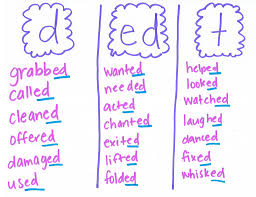 d ed t
grabbed wanted helped
called needed looked
cleaned acted watched
offered chanted laughed
damaged exited danced
used lifted fixed
folded whisked